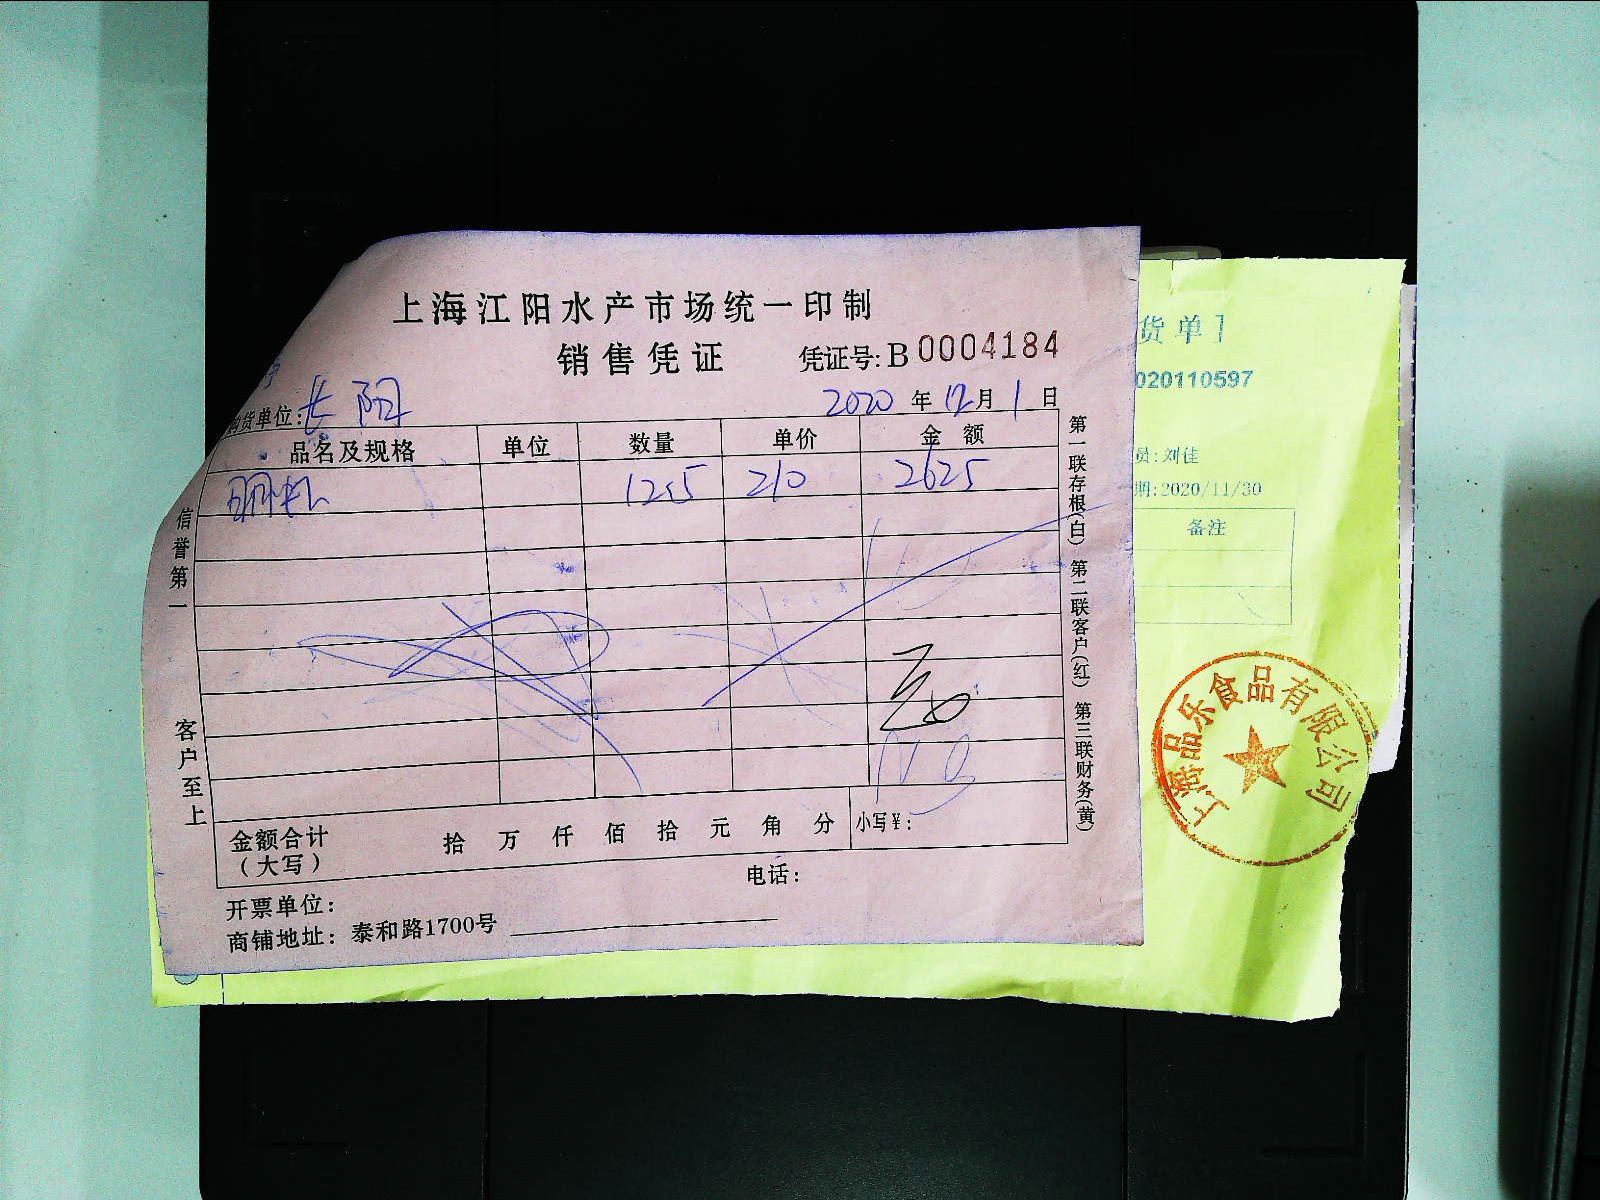 上海江阳水产市场统一印制
销售凭证 凭证号: B 0004184
购货单位: 长阳 2020 年 12 月 1 日
品名及规格 单位 数量 单价 金额
12.5 210 2625
金额合计 (大写) 拾 万 仟 佰 拾 元 角 分 小写¥:
开票单位: 电话:
商铺地址: 泰和路1700号
信誉第一 客户至上
第一联存根(白) 第二联客户(红) 第三联财务(黄)
货单】
020110597
员:刘佳
期:2020/11/30
备注
上海品乐食品有限公司